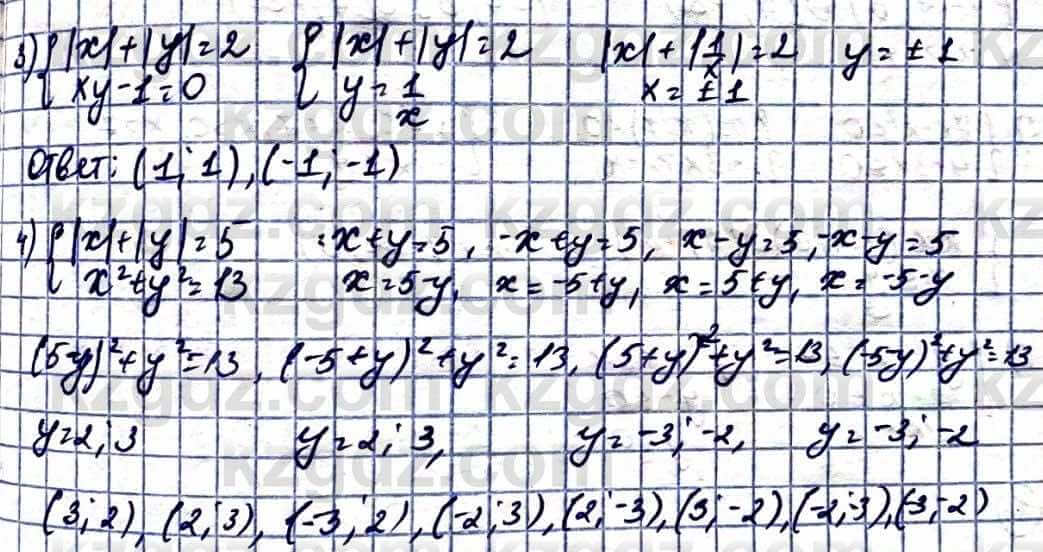 3) { |x|+|y|=2 { |x|+|y|=2 |x|+|1/x|=2 y=±1
xy-1=0 y=1/x x=±1
Ответ: (1; 1), (-1; -1)
4) { |x|+|y|=5 x+y=5, -x+y=5, x-y=5, -x-y=5
x²+y²=13 x=5-y, x=-5+y, x=5+y, x=-5-y
(5-y)²+y²=13, (-5+y)²+y²=13, (5+y)²+y²=13, (-5-y)²+y²=13
y=2; 3 y=2; 3, y=-3; -2, y=-3; -2
(3; 2), (2; 3), (-3; 2), (-2; 3), (2; -3), (3; -2), (-2; -3), (-3; -2)
kzgdz.com